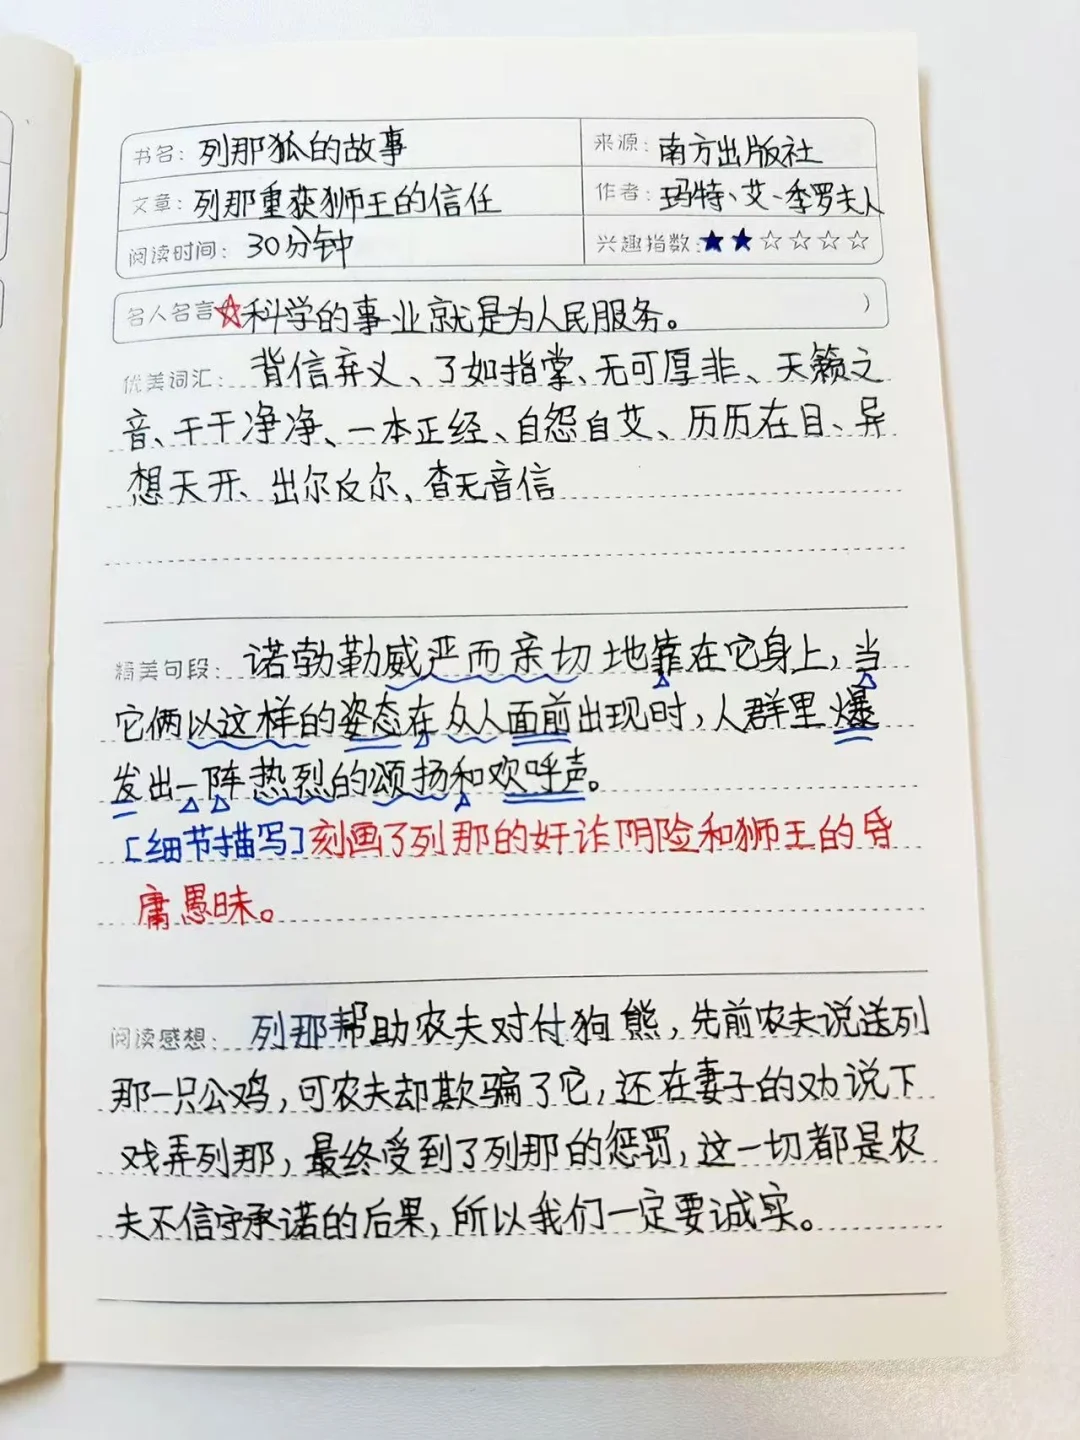 书名: 列那狐的故事 来源: 南方出版社
文章: 列那重获狮王的信任 作者: 玛特、艾·季罗夫人
阅读时间: 30分钟 兴趣指数: ★★☆☆☆☆
名人名言 ☆科学的事业就是为人民服务。 )
优美词汇: 背信弃义、了如指掌、无可厚非、天籁之
音、干干净净、一本正经、自怨自艾、历历在目、异
想天开、出尔反尔、杳无音信
精美句段: 诺勃勒威严而亲切地靠在它身上,当
它俩以这样的姿态在众人面前出现时,人群里爆
发出一阵热烈的颂扬和欢呼声。
[细节描写]刻画了列那的奸诈阴险和狮王的昏
庸愚昧。
阅读感想: 列那帮助农夫对付狗熊,先前农夫说送列
那一只公鸡,可农夫却欺骗了它,还在妻子的劝说下
戏弄列那,最终受到了列那的惩罚,这一切都是农
夫不信守承诺的后果,所以我们一定要诚实。